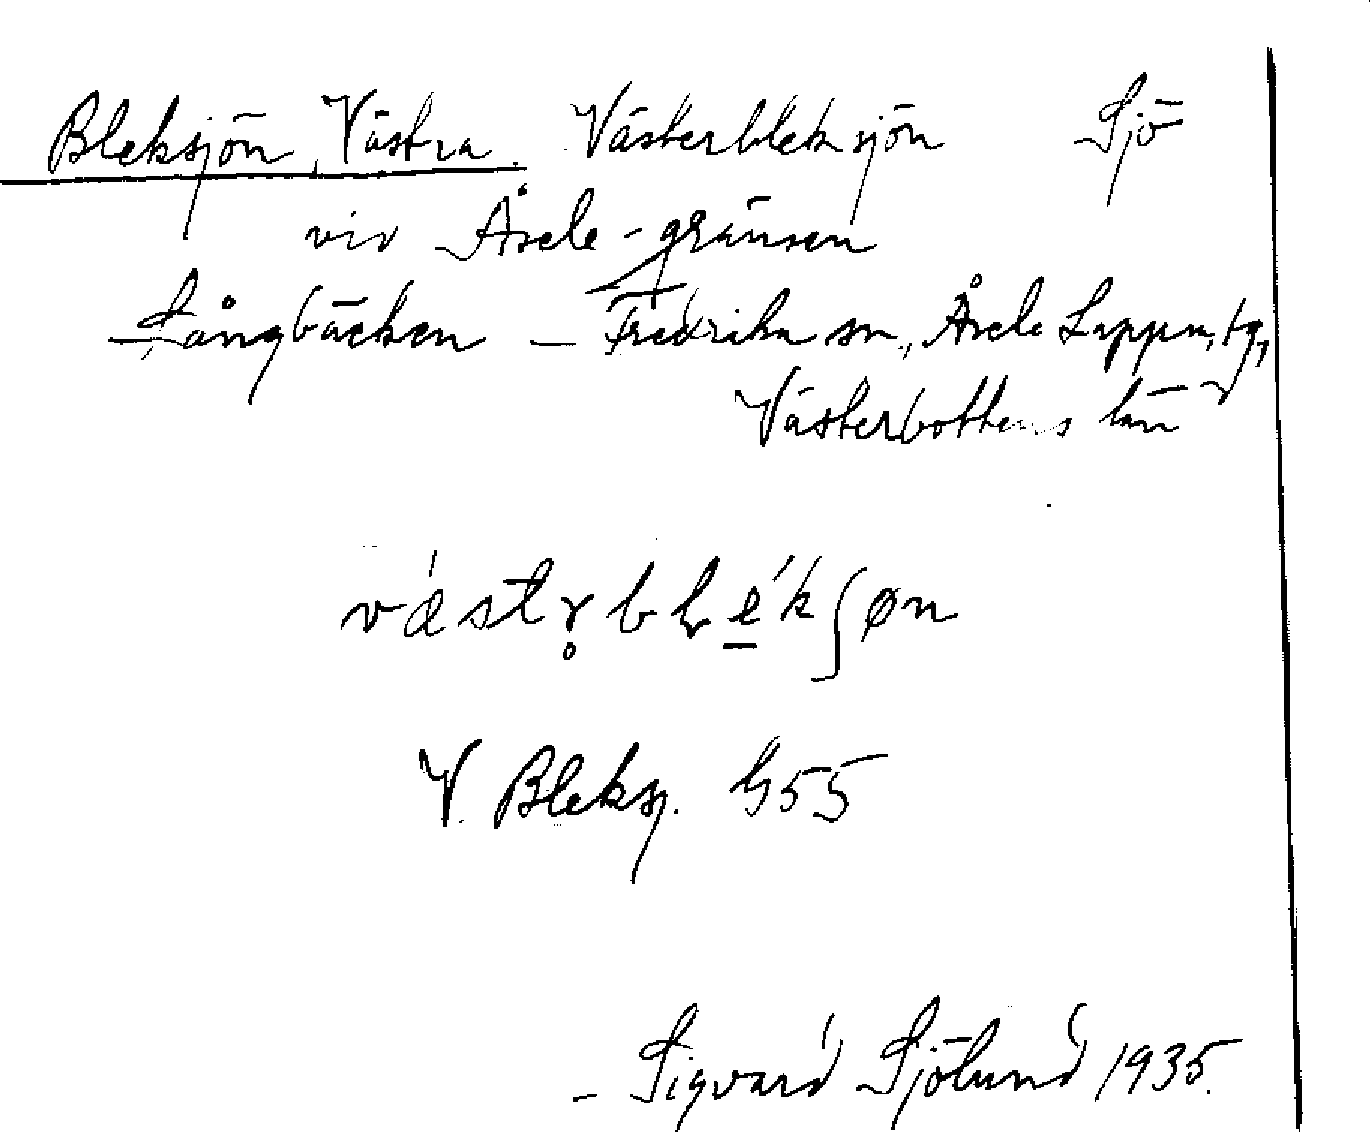 Bleksjön, Västra. Västerbleksjön Sjö
vid Åsele-gränsen
Långbäcken – Fredrika sn, Åsele Lappm. tg,
Västerbottens län
væ´str̥blé̱kʃøn
V. Bleksj. G55
– Sigvard Sjölund 1935.